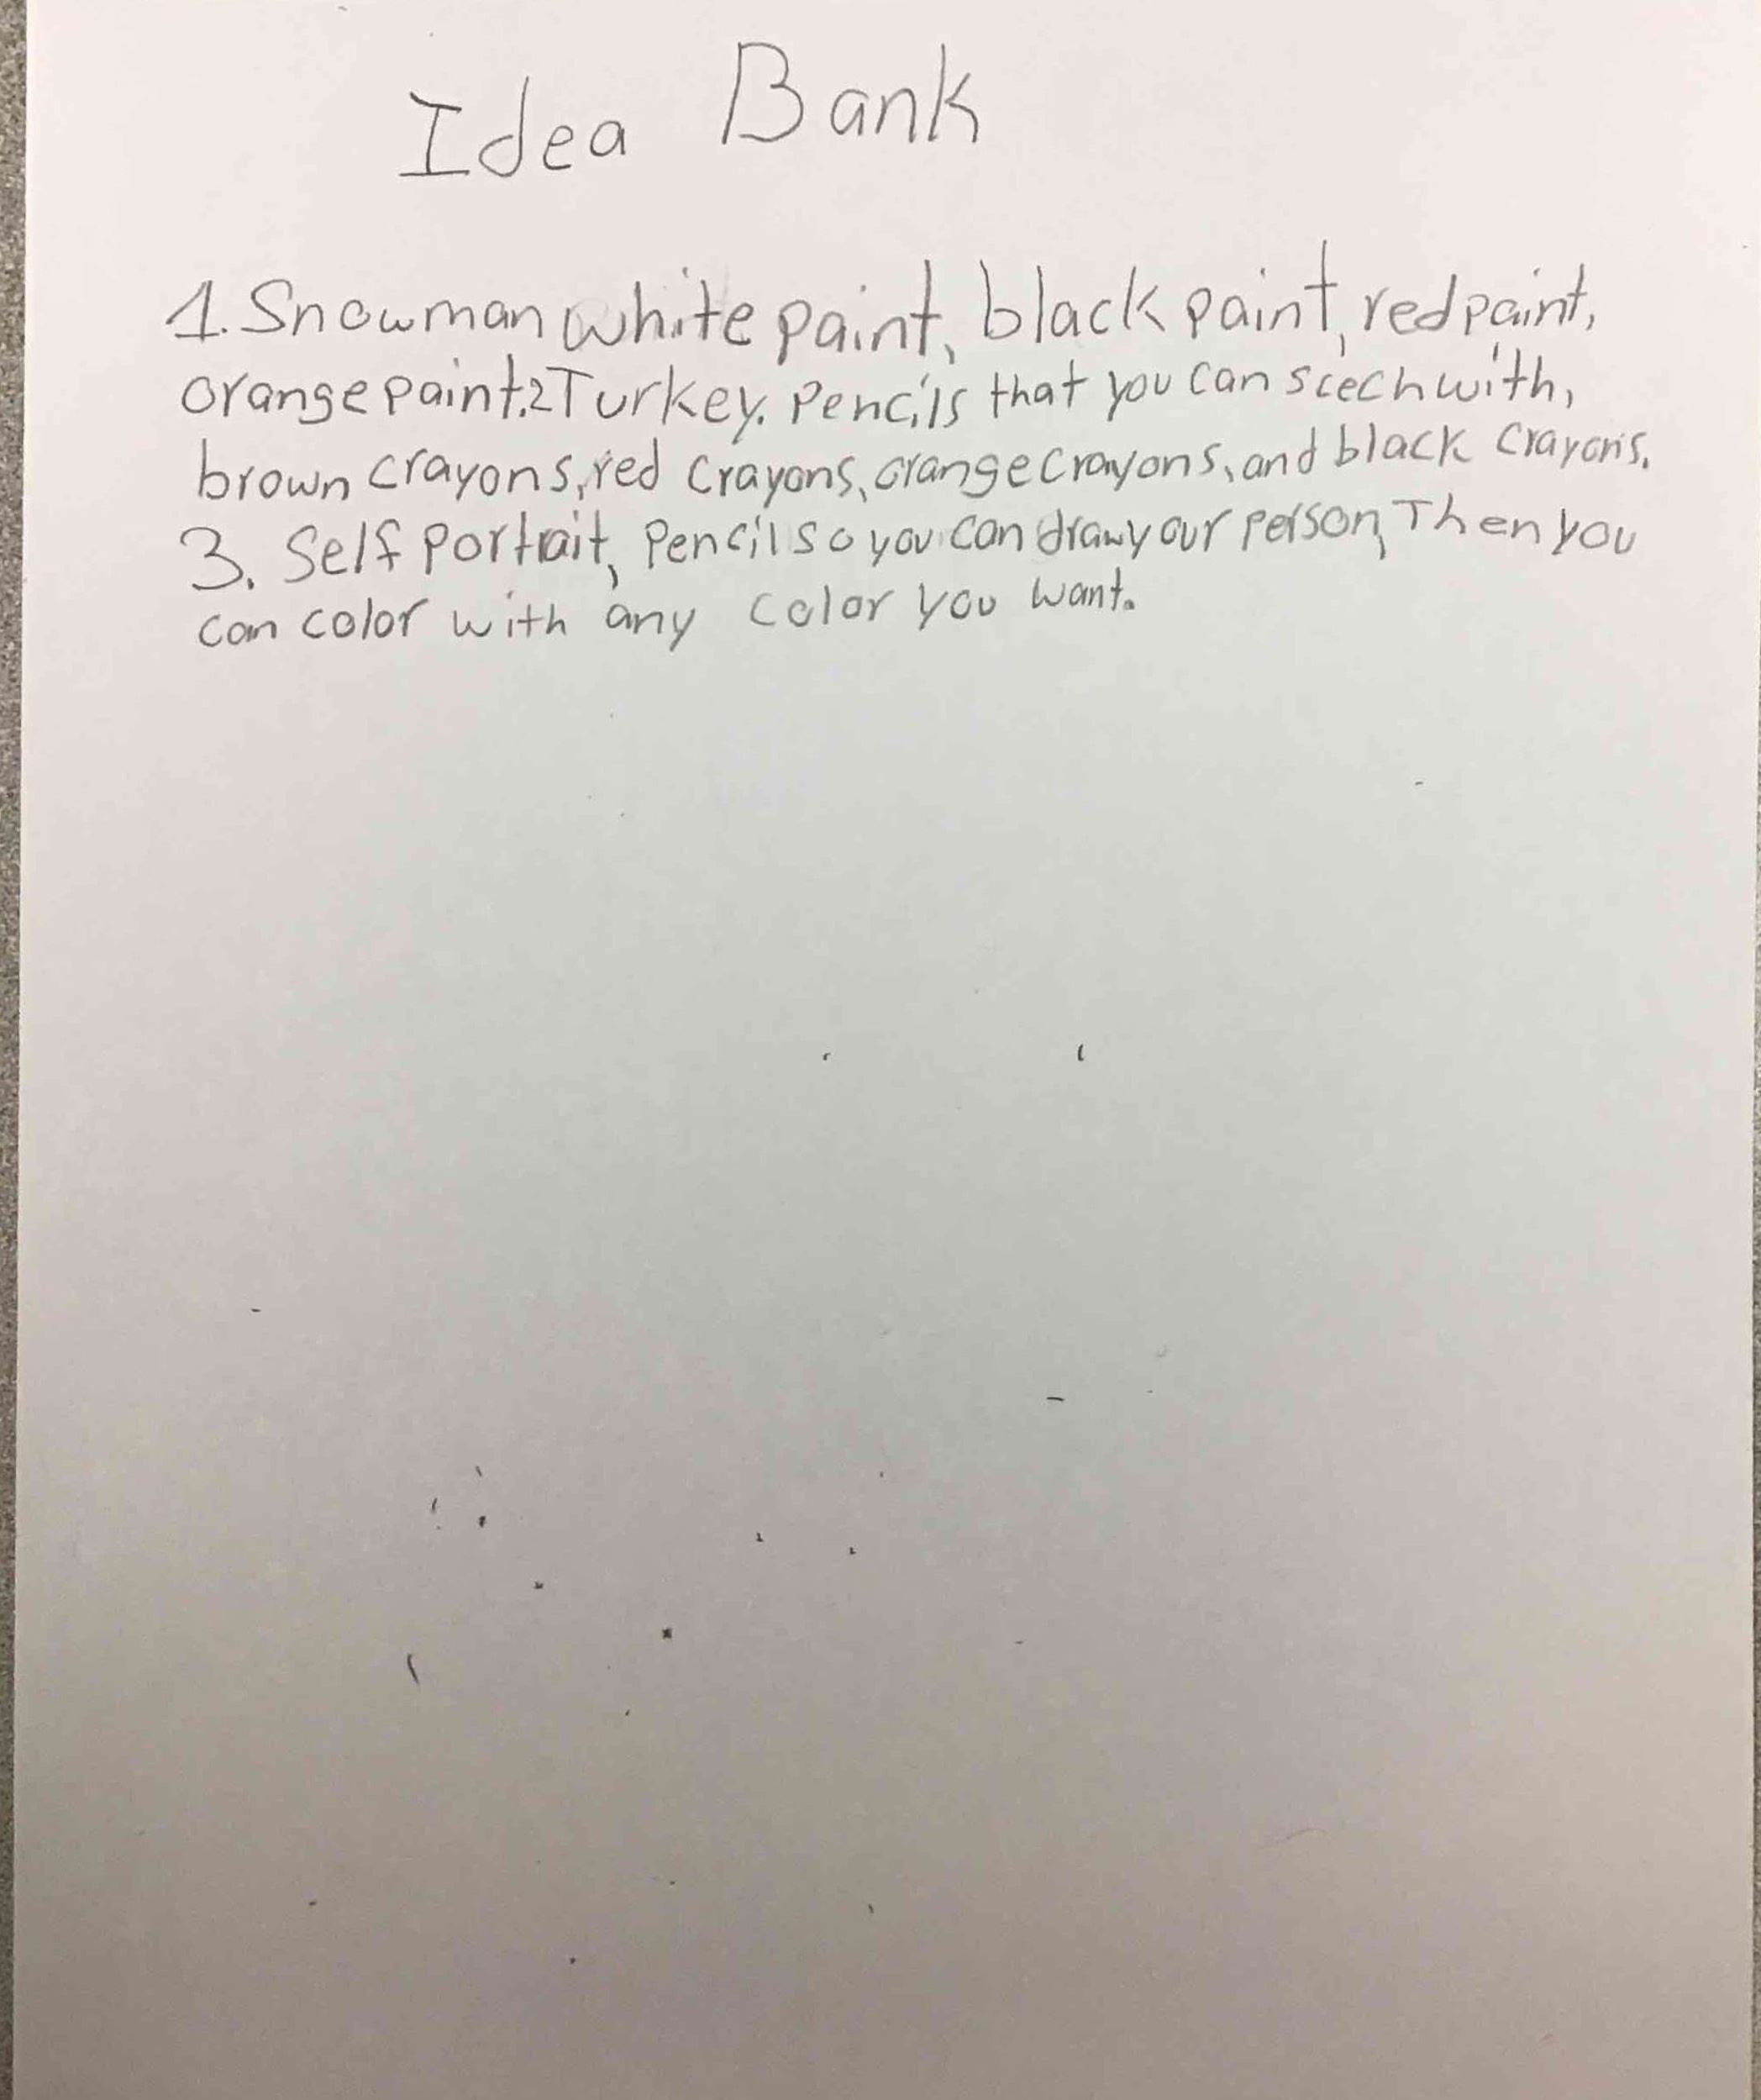 Idea Bank
1. Snowman white paint, black paint, red paint,
orange paint.2 Turkey. Pencils that you can scech with,
brown crayons, red crayons, orange crayons, and black crayons.
3. Self portrait, Pencil so you can draw your person, Then you
can color with any color you want.